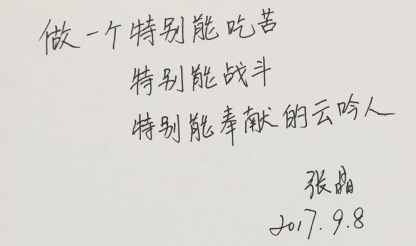 做一个特别能吃苦
特别能战斗
特别能奉献的云吟人
张晶
2017.9.8